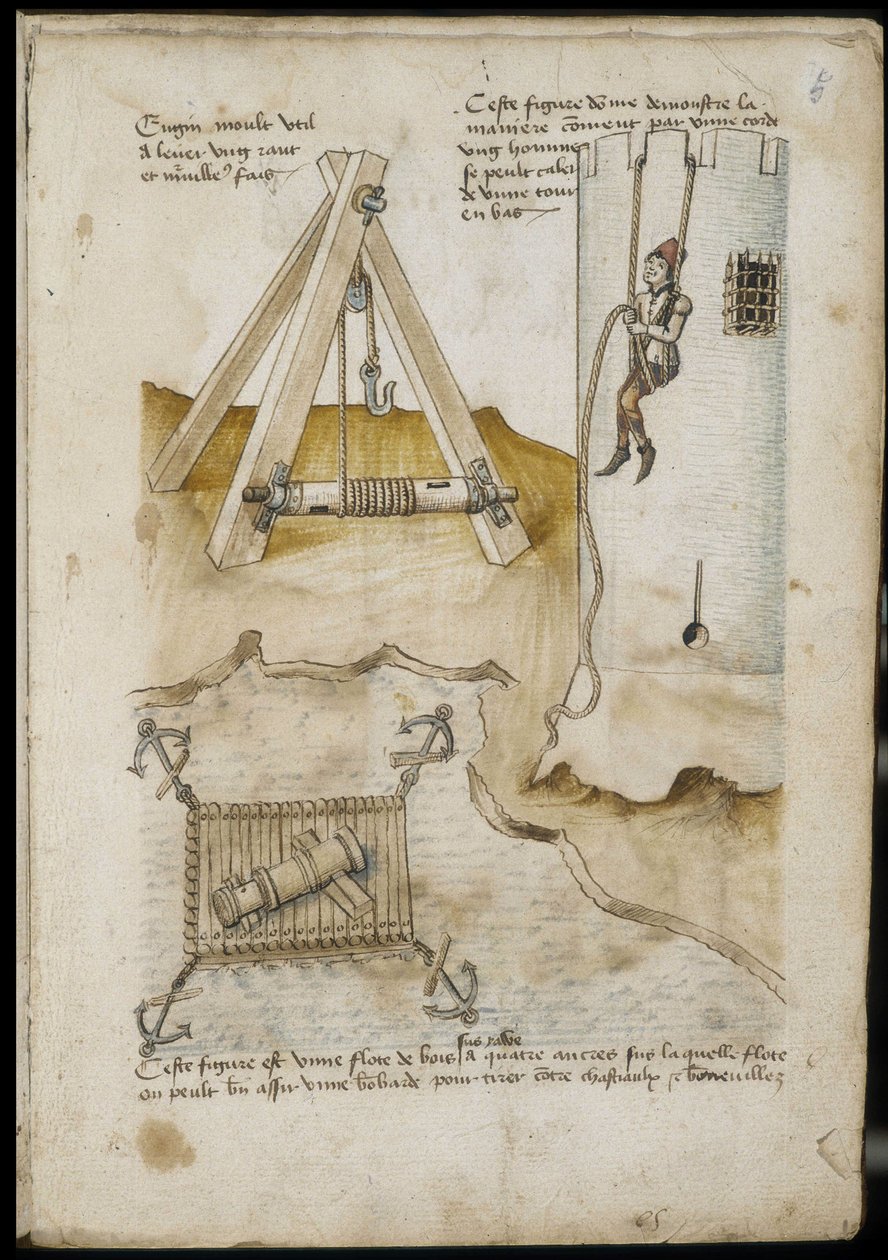 Engin moult util
a lever ung
et fais
Ceste figure dōnne demonstre la
maniere cōment par unne corde
ung homme
se peult caler
de unne tour
en bas
sus eawe
Ceste figure est unne flote de bois a quatre ancres sus la quelle flote
on peult bn assir unne bōbarde pour tirer cōtre chastiaulx